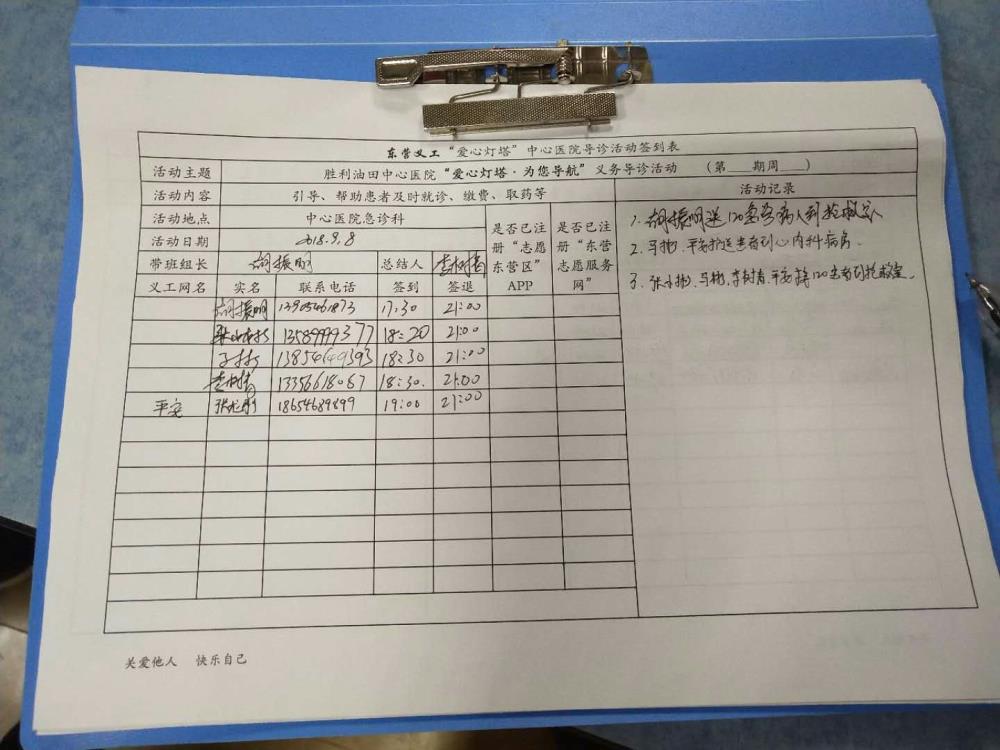 东营义工“爱心灯塔”中心医院导诊活动签到表
活动主题 胜利油田中心医院“爱心灯塔·为您导航”义务导诊活动 (第____期周____)
活动内容 引导、帮助患者及时就诊、缴费、取药等 活动记录
活动地点 中心医院急诊科 是否已注册“志愿东营区”APP 是否已注册“东营志愿服务网”
活动日期 2018.9.8
带班组长 胡振明 总结人 李树青
义工网名 实名 联系电话 签到 签退
胡振明 13905461873 17:30 21:00
13589999377 18:20 21:00
13854649393 18:30 21:00
李树青 13356618067 18:30. 21:00
平安 18654689899 19:00 21:00
1. 胡振明送120急诊病人到抢救室
2. 马彬、平安护送患者到心内科病房.
3. 马彬、李树青、平安接120患者到抢救室.
关爱他人 快乐自己